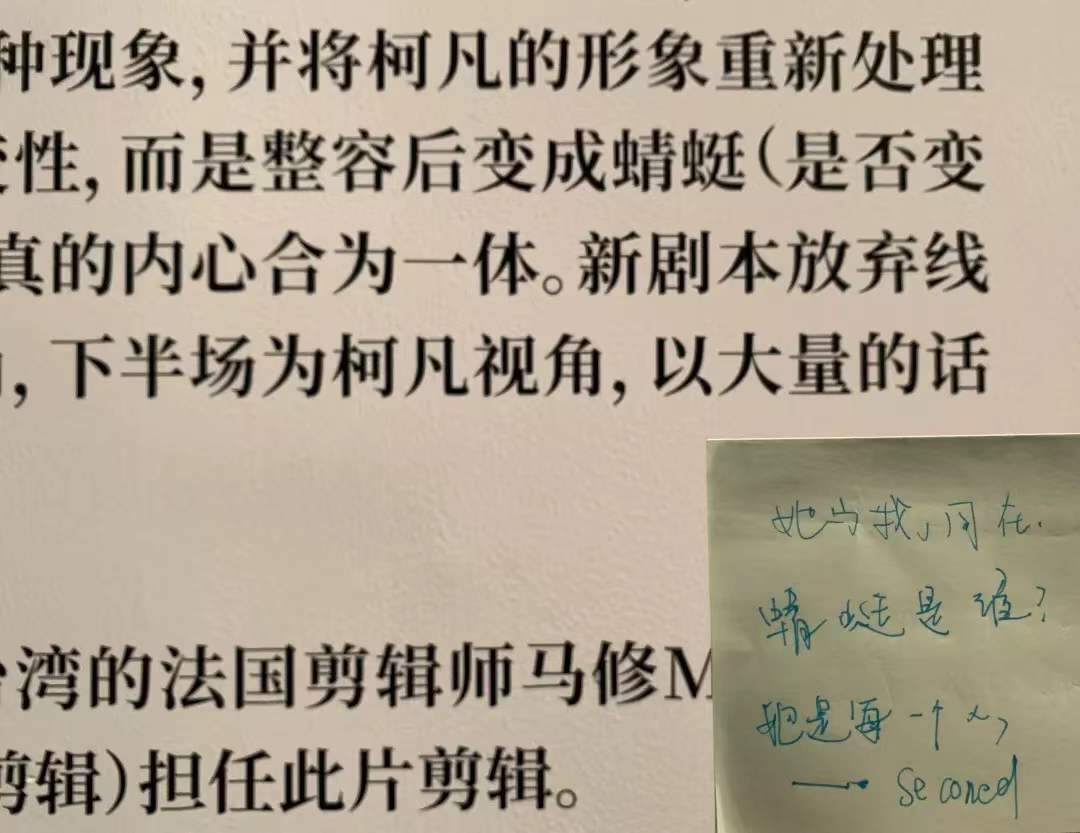 种现象,并将柯凡的形象重新处理
性,而是整容后变成蜻蜓(是否变
真的内心合为一体。新剧本放弃线
,下半场为柯凡视角,以大量的话
湾的法国剪辑师马修M
剪辑)担任此片剪辑。
她与我,同在.
蜻蜓是谁?
她是每一个人,
→ Second